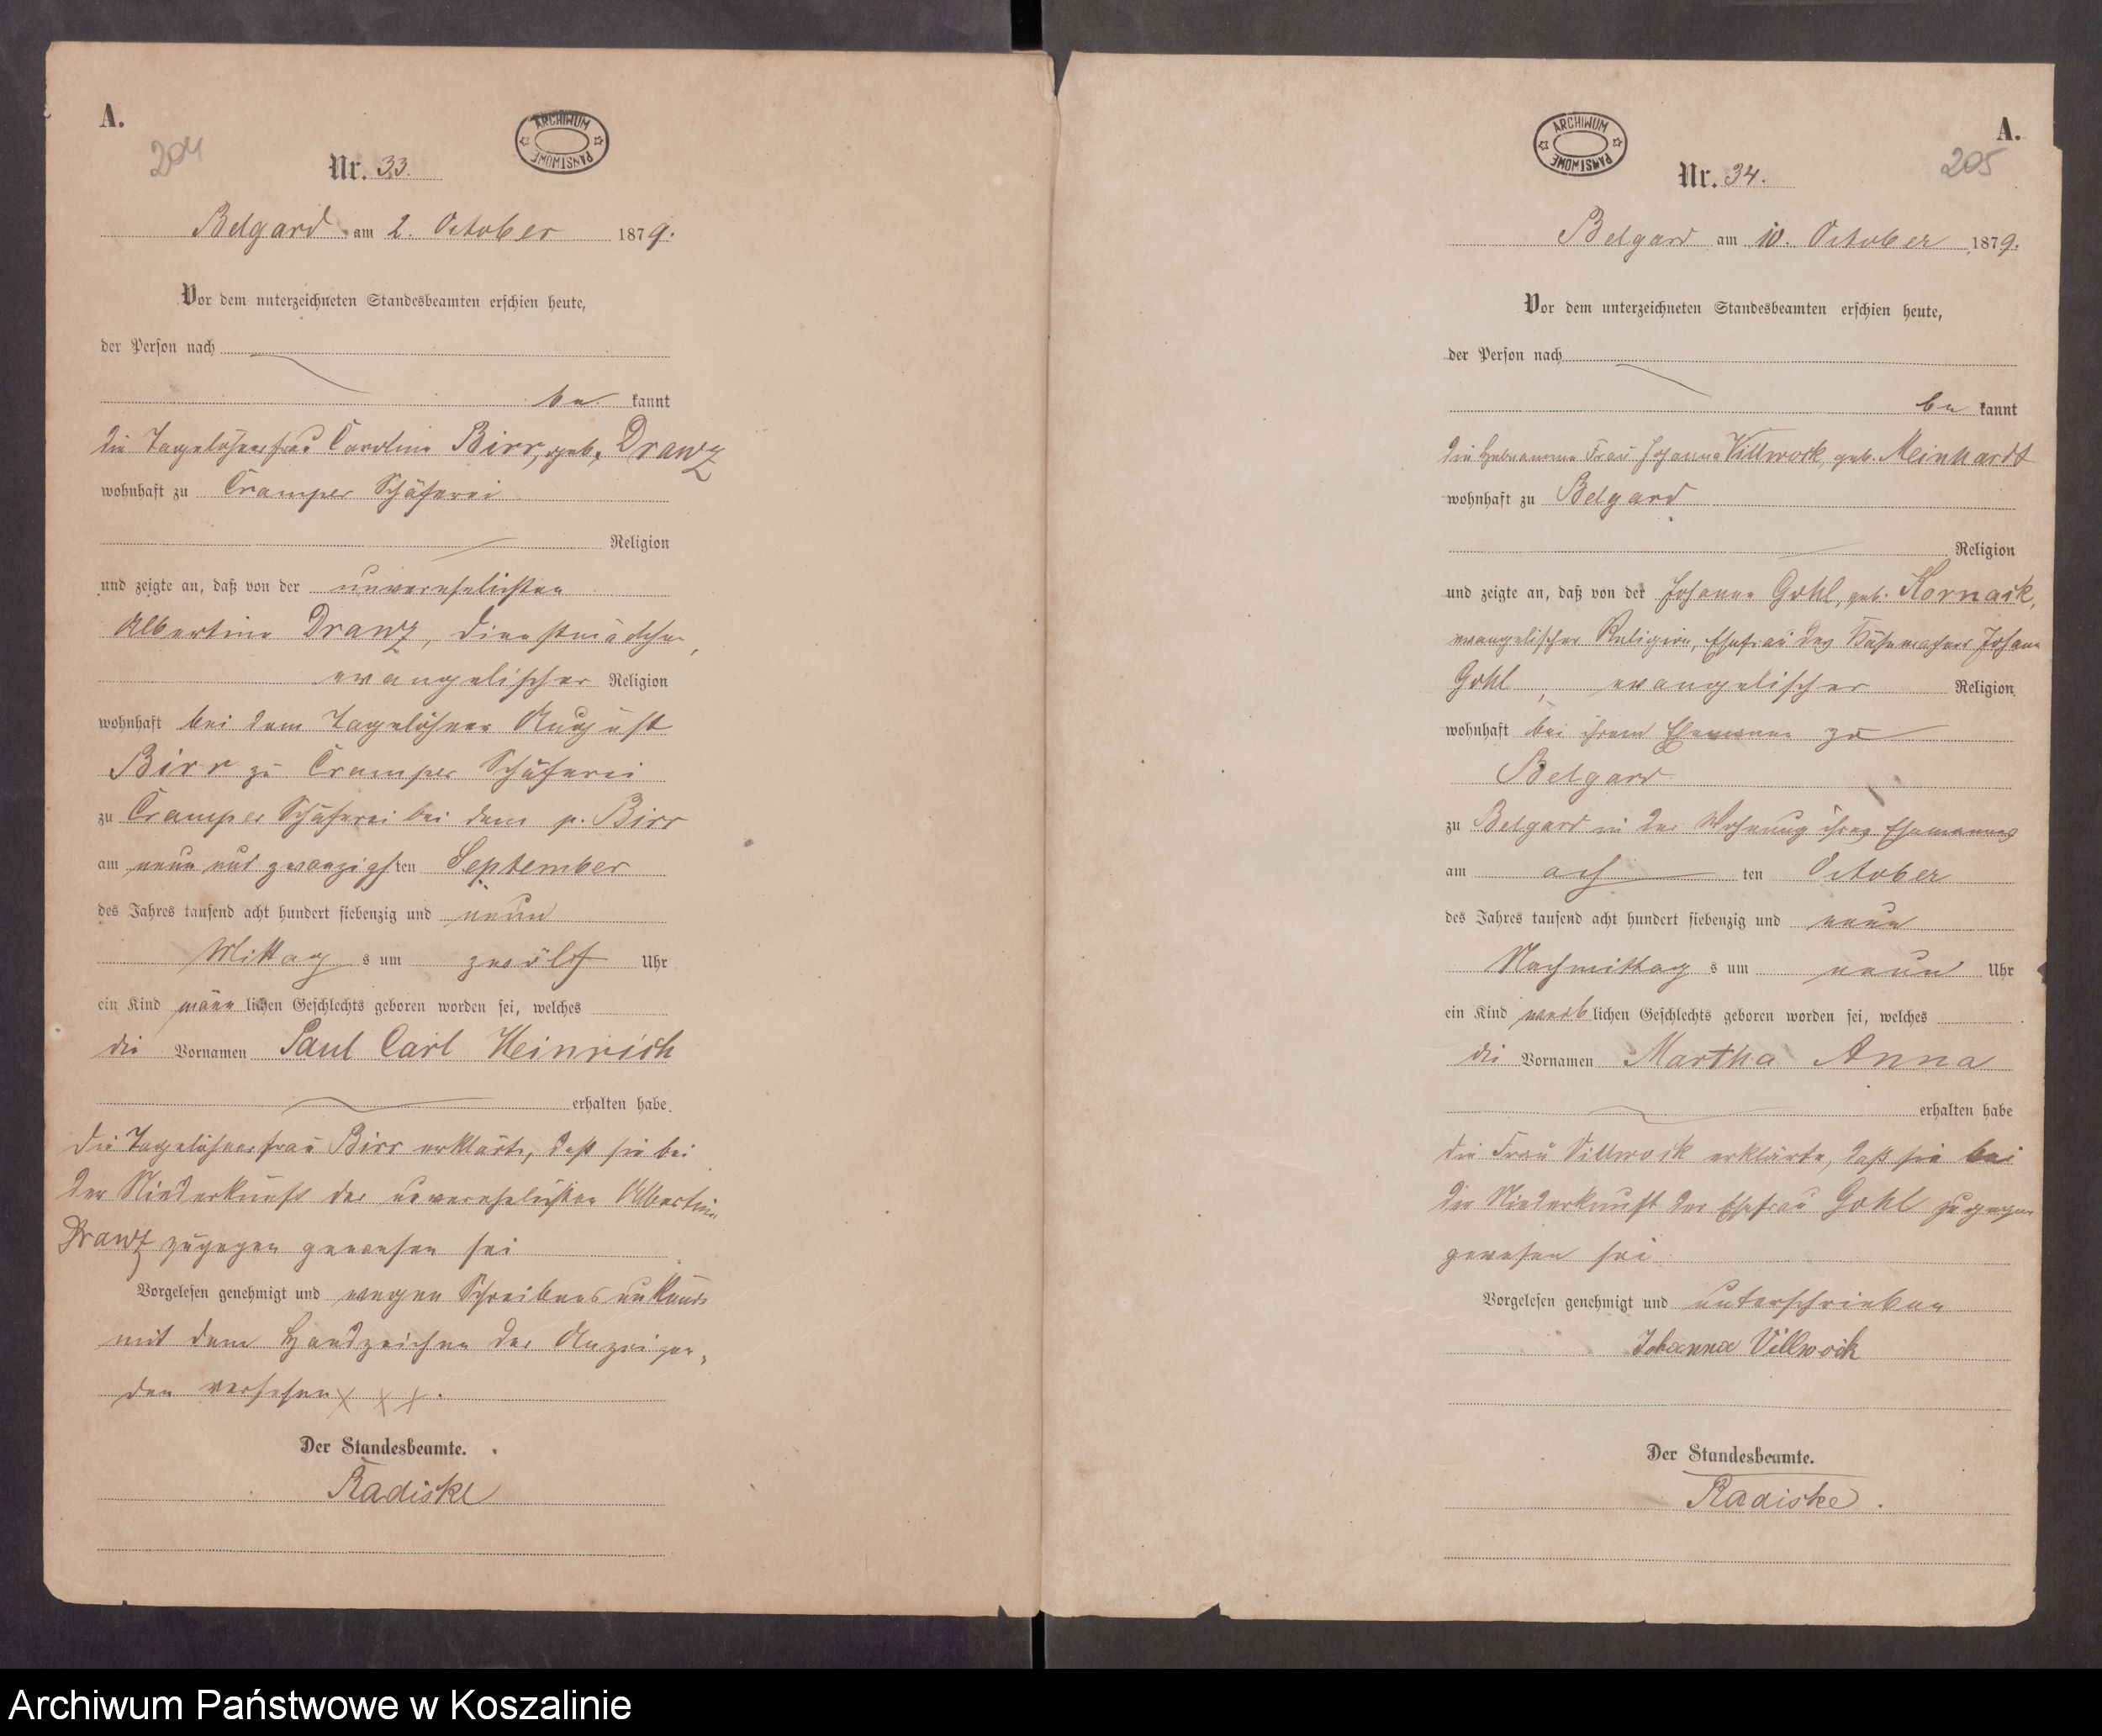 A.
204
ARCHIWUM PAŃSTWOWE
Nr. 33.
Belgard am 2. October 1879.
Vor dem unterzeichneten Standesbeamten erschien heute,
der Person nach
be kannt
die Tagelöhnerfrau Caroline Birr, geb. Drawz
wohnhaft zu Cramper Schäferei
Religion
und zeigte an, daß von der unverehelichten
Albertine Drawz, Dienstmädchen,
evangelischer Religion
wohnhaft bei dem Tagelöhner August
Birr zu Cramper Schäferei
zu Cramper Schäferei bei dem p. Birr
am neun und zwanzigsten September
des Jahres tausend acht hundert siebenzig und neun
Mittag s um zwölf Uhr
ein Kind männ lichen Geschlechts geboren worden sei, welches
die Vornamen Paul Carl Heinrich
erhalten habe.
Die Tagelöhnerfrau Birr erklärte, daß sie bei
der Niederkunft der unverehelichten Albertine
Drawz zugegen gewesen sei
Vorgelesen genehmigt und wegen Schreibensunkunde
mit dem Handzeichen der Anzeigen-
den versehen x x x.
Der Standesbeamte.
Radiske
A.
205
ARCHIWUM PAŃSTWOWE
Nr. 34.
Belgard am 10. October 1879.
Vor dem unterzeichneten Standesbeamten erschien heute,
der Person nach
be kannt
die Hebeamme Frau Johanna Villwock, geb. Meinhardt
wohnhaft zu Belgard
Religion
und zeigte an, daß von der Johanne Gohl, geb. Kornack,
evangelischer Religion, Ehefrau des Johann
Gohl, evangelischer Religion
wohnhaft bei ihrem Ehemann zu
Belgard
zu Belgard in der Wohnung ihres Ehemannes
am ach ten October
des Jahres tausend acht hundert siebenzig und neun
Nachmittag s um neun Uhr
ein Kind weib lichen Geschlechts geboren worden sei, welches
die Vornamen Martha Anna
erhalten habe
die Frau Villwock erklärte, daß sie bei
der Niederkunft der Ehefrau Gohl zugegen
gewesen sei
Vorgelesen genehmigt und unterschrieben
Johanna Villwock
Der Standesbeamte.
Radiske.
Archiwum Państwowe w Koszalinie